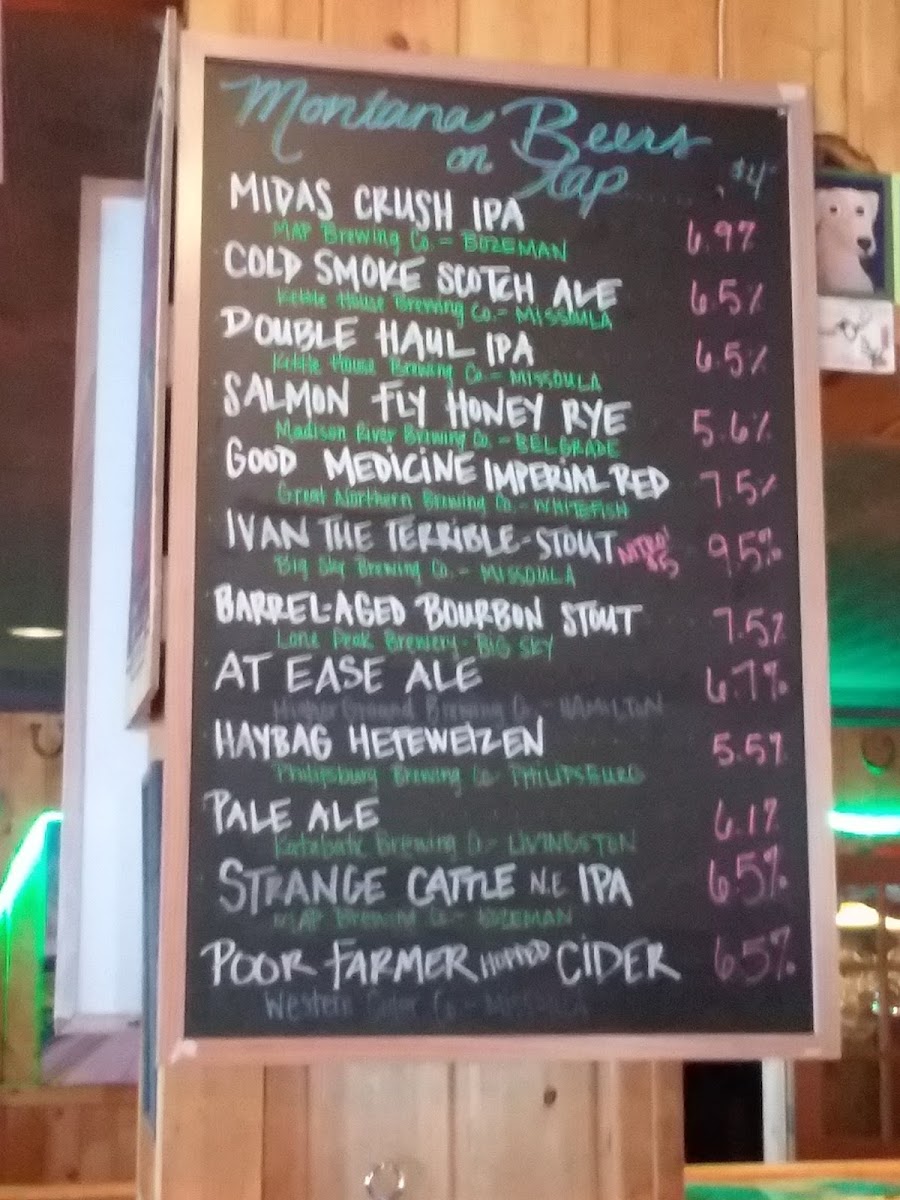 Montana Beers
on Tap ........ $4
MIDAS CRUSH IPA 6.9%
MAP Brewing Co. - BOZEMAN
COLD SMOKE SCOTCH ALE 6.5%
Kettle House Brewing Co. - MISSOULA
DOUBLE HAUL IPA 6.5%
Kettle House Brewing Co. - MISSOULA
SALMON FLY HONEY RYE 5.6%
Madison River Brewing Co. - BELGRADE
GOOD MEDICINE IMPERIAL RED 7.5%
Great Northern Brewing Co. - WHITEFISH
IVAN THE TERRIBLE-STOUT NITRO! $5 9.5%
Big Sky Brewing Co. - MISSOULA
BARREL-AGED BOURBON STOUT 7.5%
Lone Peak Brewery - BIG SKY
AT EASE ALE 6.7%
Higher Ground Brewing Co - HAMILTON
HAYBAG HEFEWEIZEN 5.5%
Philipsburg Brewing Co - PHILIPSBURG
PALE ALE 6.1%
Katabatic Brewing Co - LIVINGSTON
STRANGE CATTLE N.E IPA 6.5%
MAP Brewing Co - BOZEMAN
POOR FARMER HOPPED CIDER 6.5%
Western Cider Co - MISSOULA